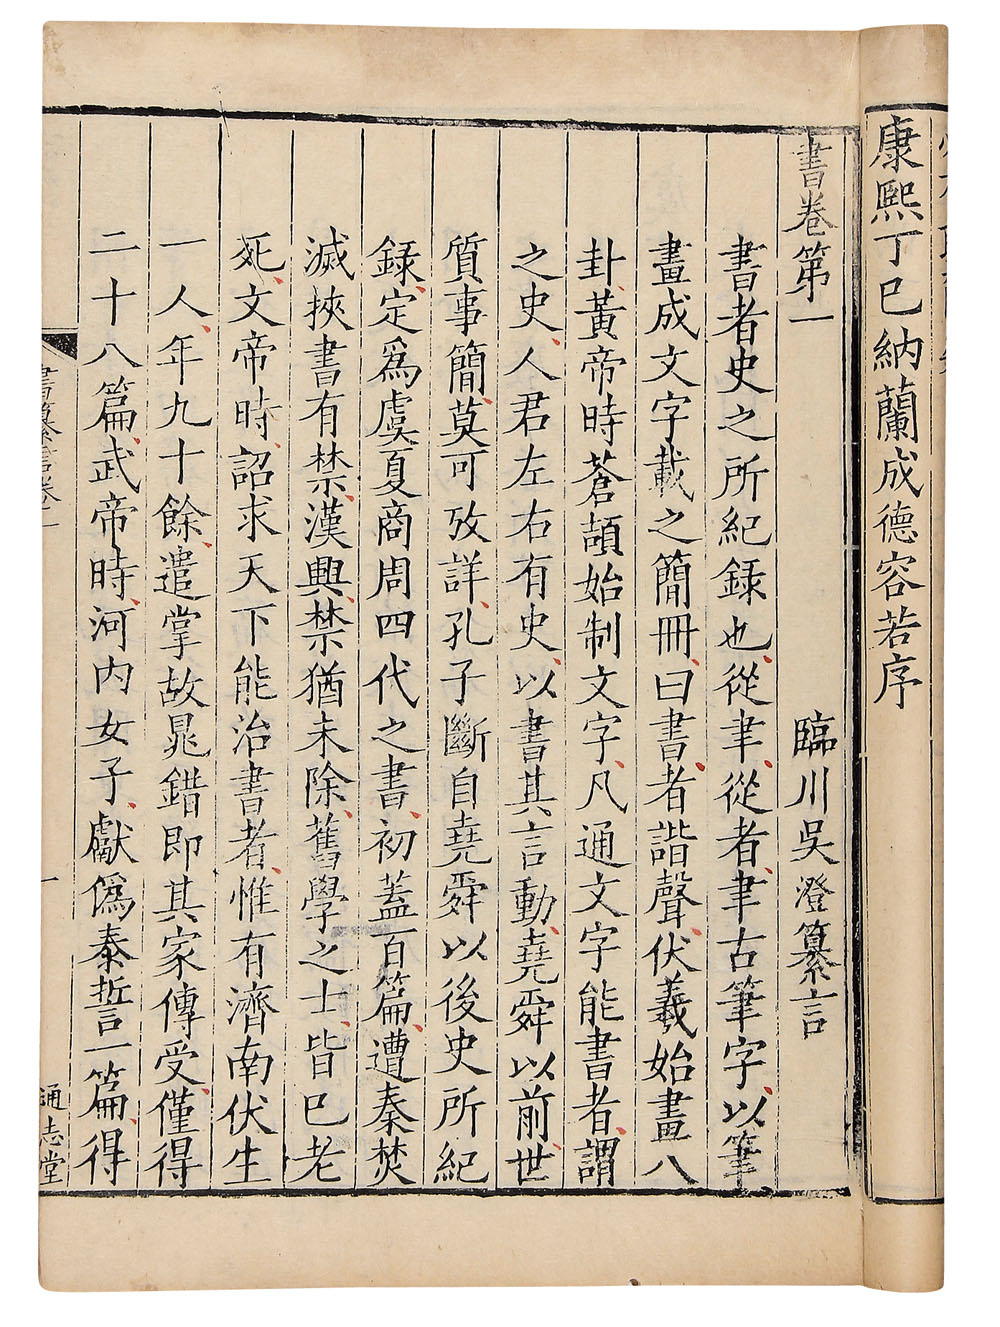 康熙丁巳納蘭成德容若序
書卷第一
臨川吳澄纂言
書者史之所紀録也從聿從者聿古筆字以筆
畫成文字載之簡冊曰書者諧聲伏羲始畫八
卦黃帝時蒼頡始制文字凡通文字能書者謂
之史人君左右有史以書其言動堯舜以前世
質事簡莫可攷詳孔子斷自堯舜以後史所紀
録定爲虞夏商周四代之書初蓋百篇遭秦焚
滅挾書有禁漢興禁猶未除舊學之士皆已老
死文帝時詔求天下能治書者惟有濟南伏生
一人年九十餘遣掌故晁錯即其家傳受僅得
二十八篇武帝時河内女子獻僞泰誓一篇得
書纂言卷一
一
通志堂